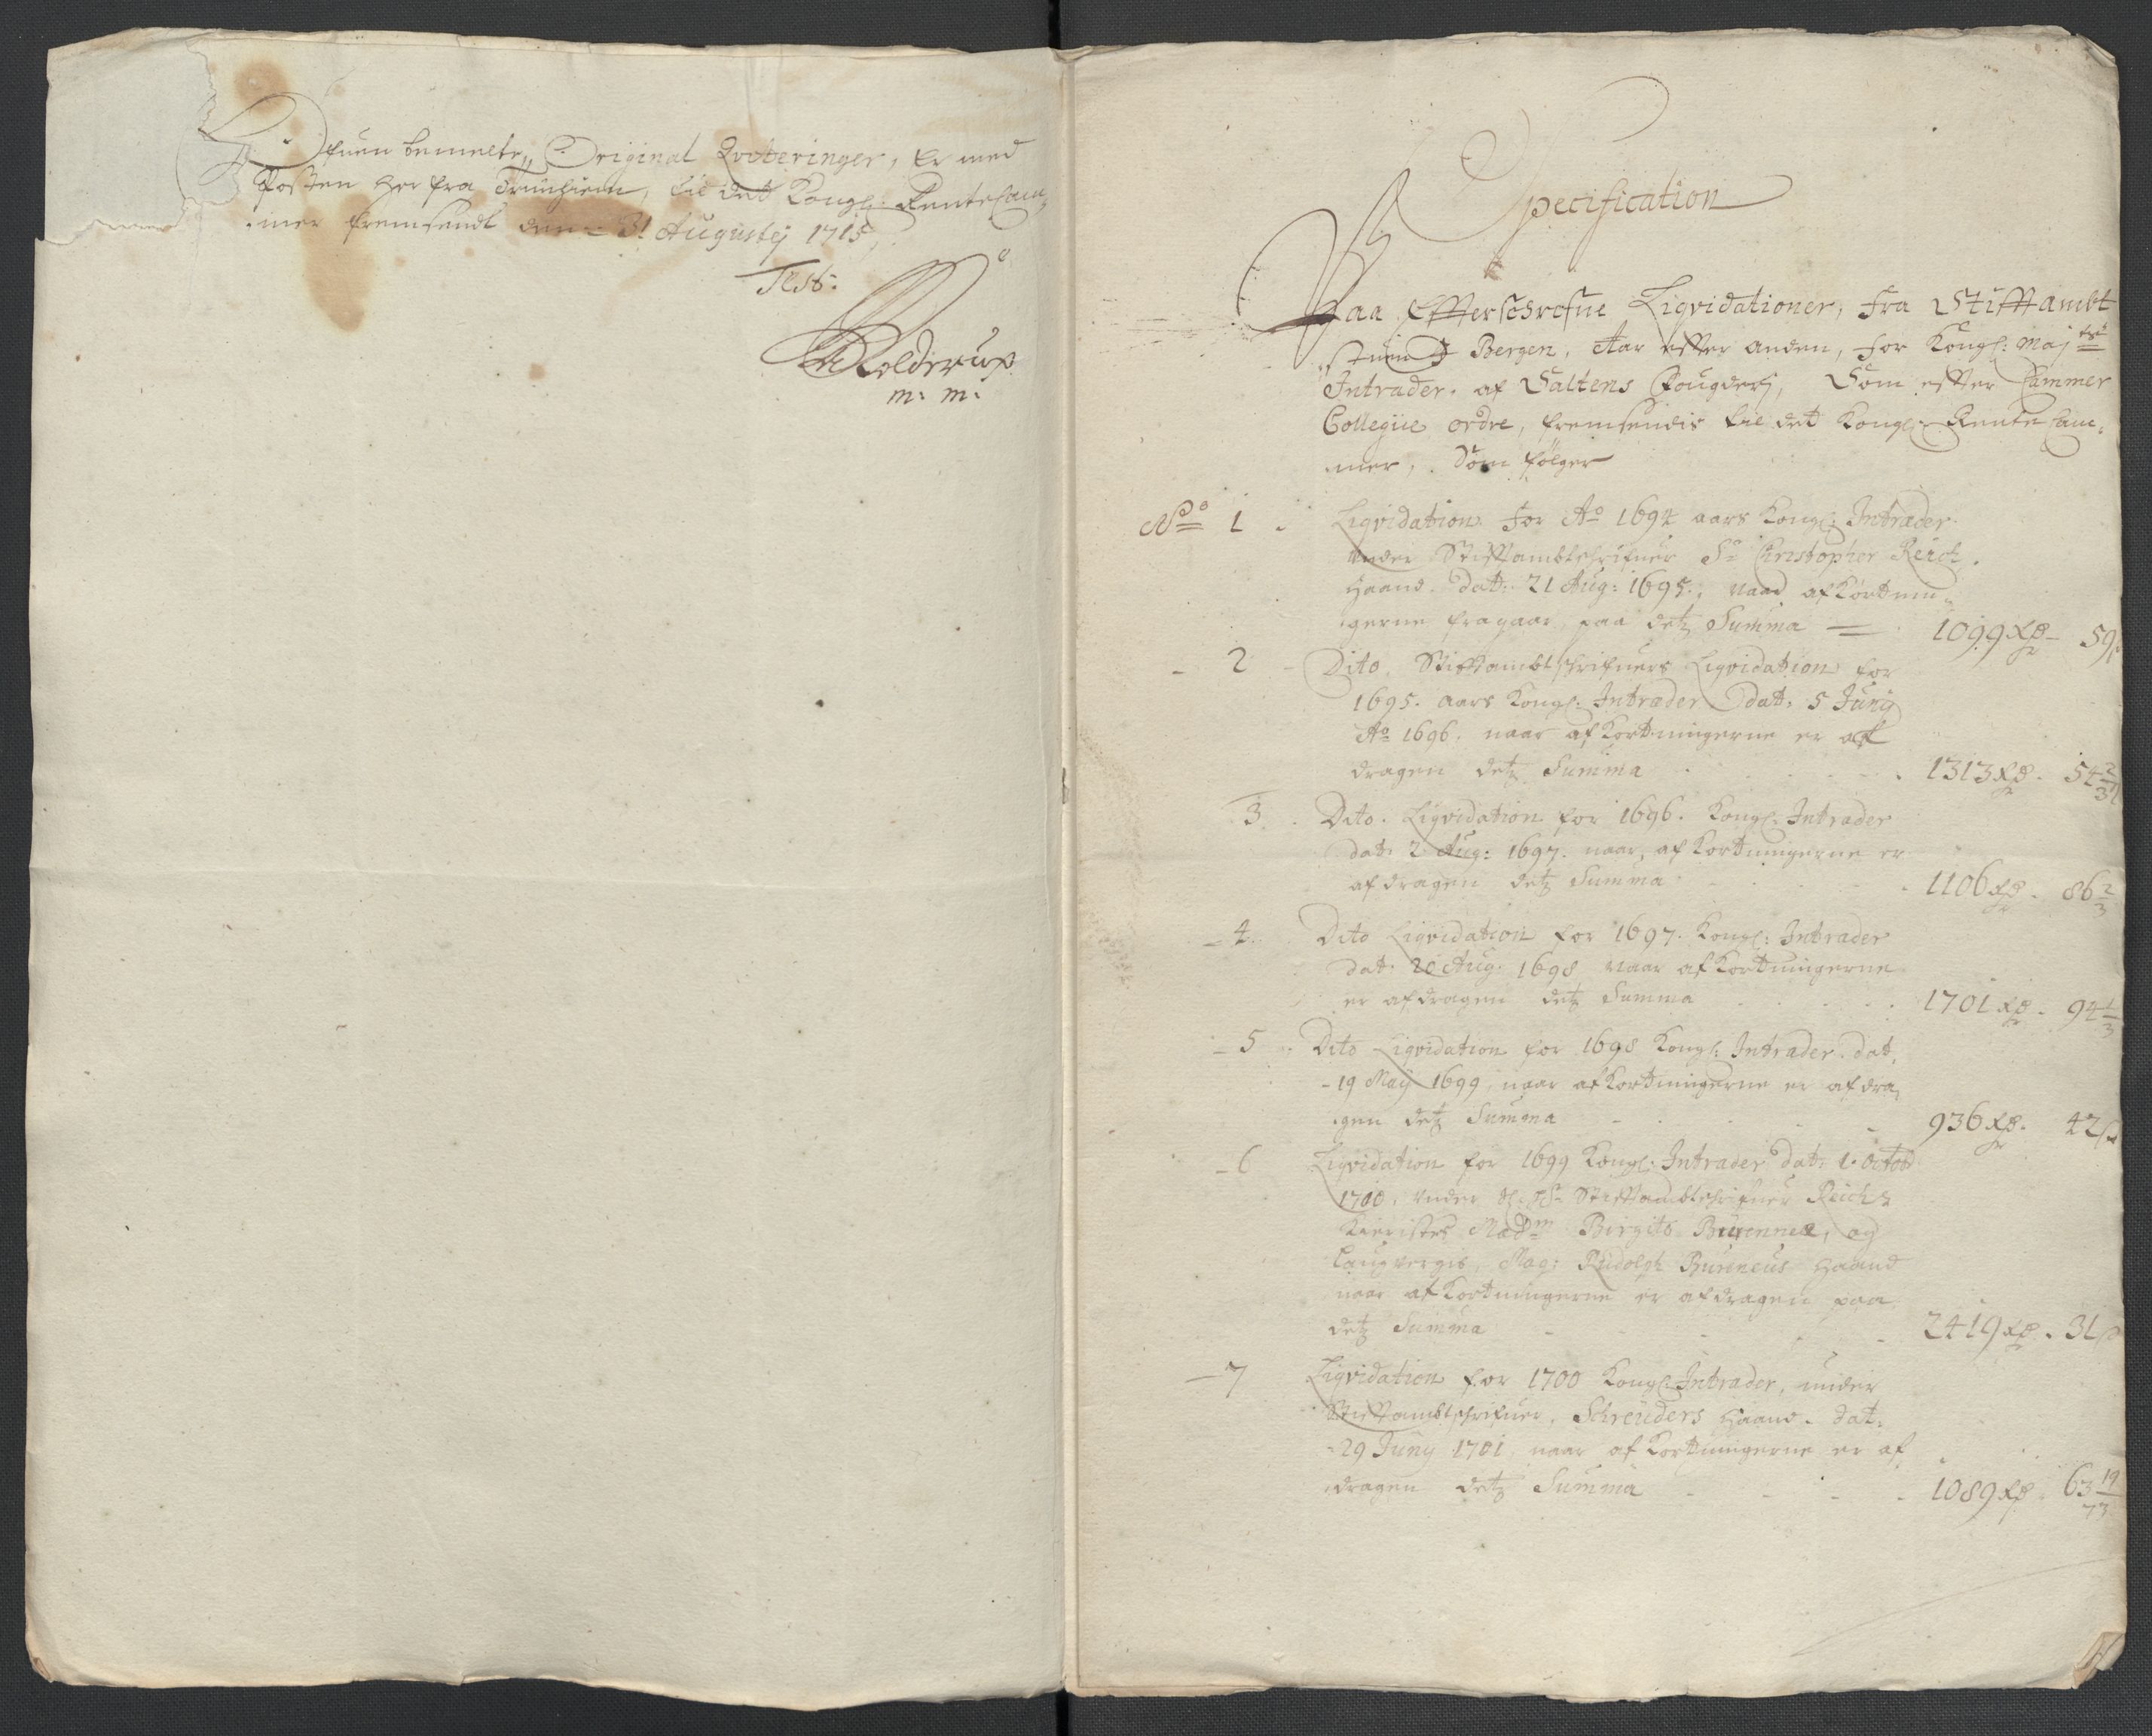 Ofuen bemelte Original Qviteringer, Er med
Posten her fra Trunhiem, til det Kongl: RenteCam,
mer fremsendt den 31 Augustij 1715,
Test:
Rolderup
m: m:
Specification
Paa Effterschrefne Liqvidationer, fra Stifftambt
stuen I Bergen, Aar effter anden, for Kongl: Maj:tz
Intrader, af Saltens Fougderj, Som effter Cammer
Collegiie ordre, fremsendis til det Kongl: Rente Cam,
mer, Som følger
No 1 Liqvidation for Ao 1694 aars Kongl: Intrader
under Stifftambtschrifuer Sr Christopher Reich
Haand dat: 21 Aug: 1695, naar afkortnin,
gerne fragaar, paa detz Summa 1099 Rd 59 s
2 Dito Stifftambtschrifuers Liqvidation for
1695 aars Kongl: Intrader dat: 5 Junij
Ao 1696. naar afkortningerne er af
dragen detz Summa 1313 Rd 54 2/3 s
3 Dito Liqvidation for 1696. Kongl: Intrader
dat: 2 Aug: 1697. naar afkortningerne er
afdragen detz Summa 1106 Rd 86 2/3
4 Dito Liqvidation for 1697. Kongl: Intrader
dat: 20 Aug: 1698 naar afkortningerne
er afdragen detz Summa 1701 Rd 94 1/3
5 Dito Liqvidation for 1698 Kongl: Intrader dat,
19 Maij 1699, naar afkortningerne er afdra,
gen detz Summa 936 Rd 42 s
6 Liqvidation for 1699 Kongl: Intrader dat: 1 Octob
1700, under Stifftambtschrifuer Reichs
Kieriste Madm Birgite, og
Laugverges, Mag: Rudolph Bureneus Haand
naar afkortningerne er afdragen paa
detz Summa 2419 Rd 31 s
7 Liqvidation for 1700 Kongl: Intrader, under
Stifftambtschrifuer, Schreuders Haand dat:
29 Junij 1701 naar afkortningerne er af
dragen detz Summa 1089 Rd 63 19/73